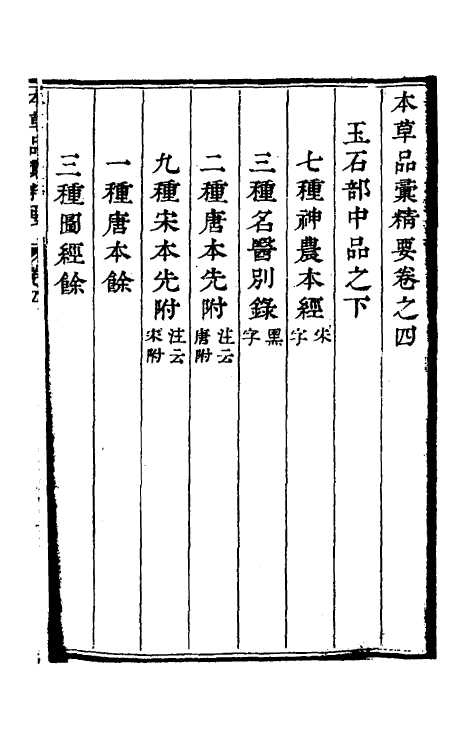 本草品彙精要卷之四
玉石部中品之下
七種神農本經朱字
三種名醫別錄黑字
二種唐本先附注云唐附
九種宋本先附注云宋附
一種唐本餘
三種圖經餘
本草品彙精要